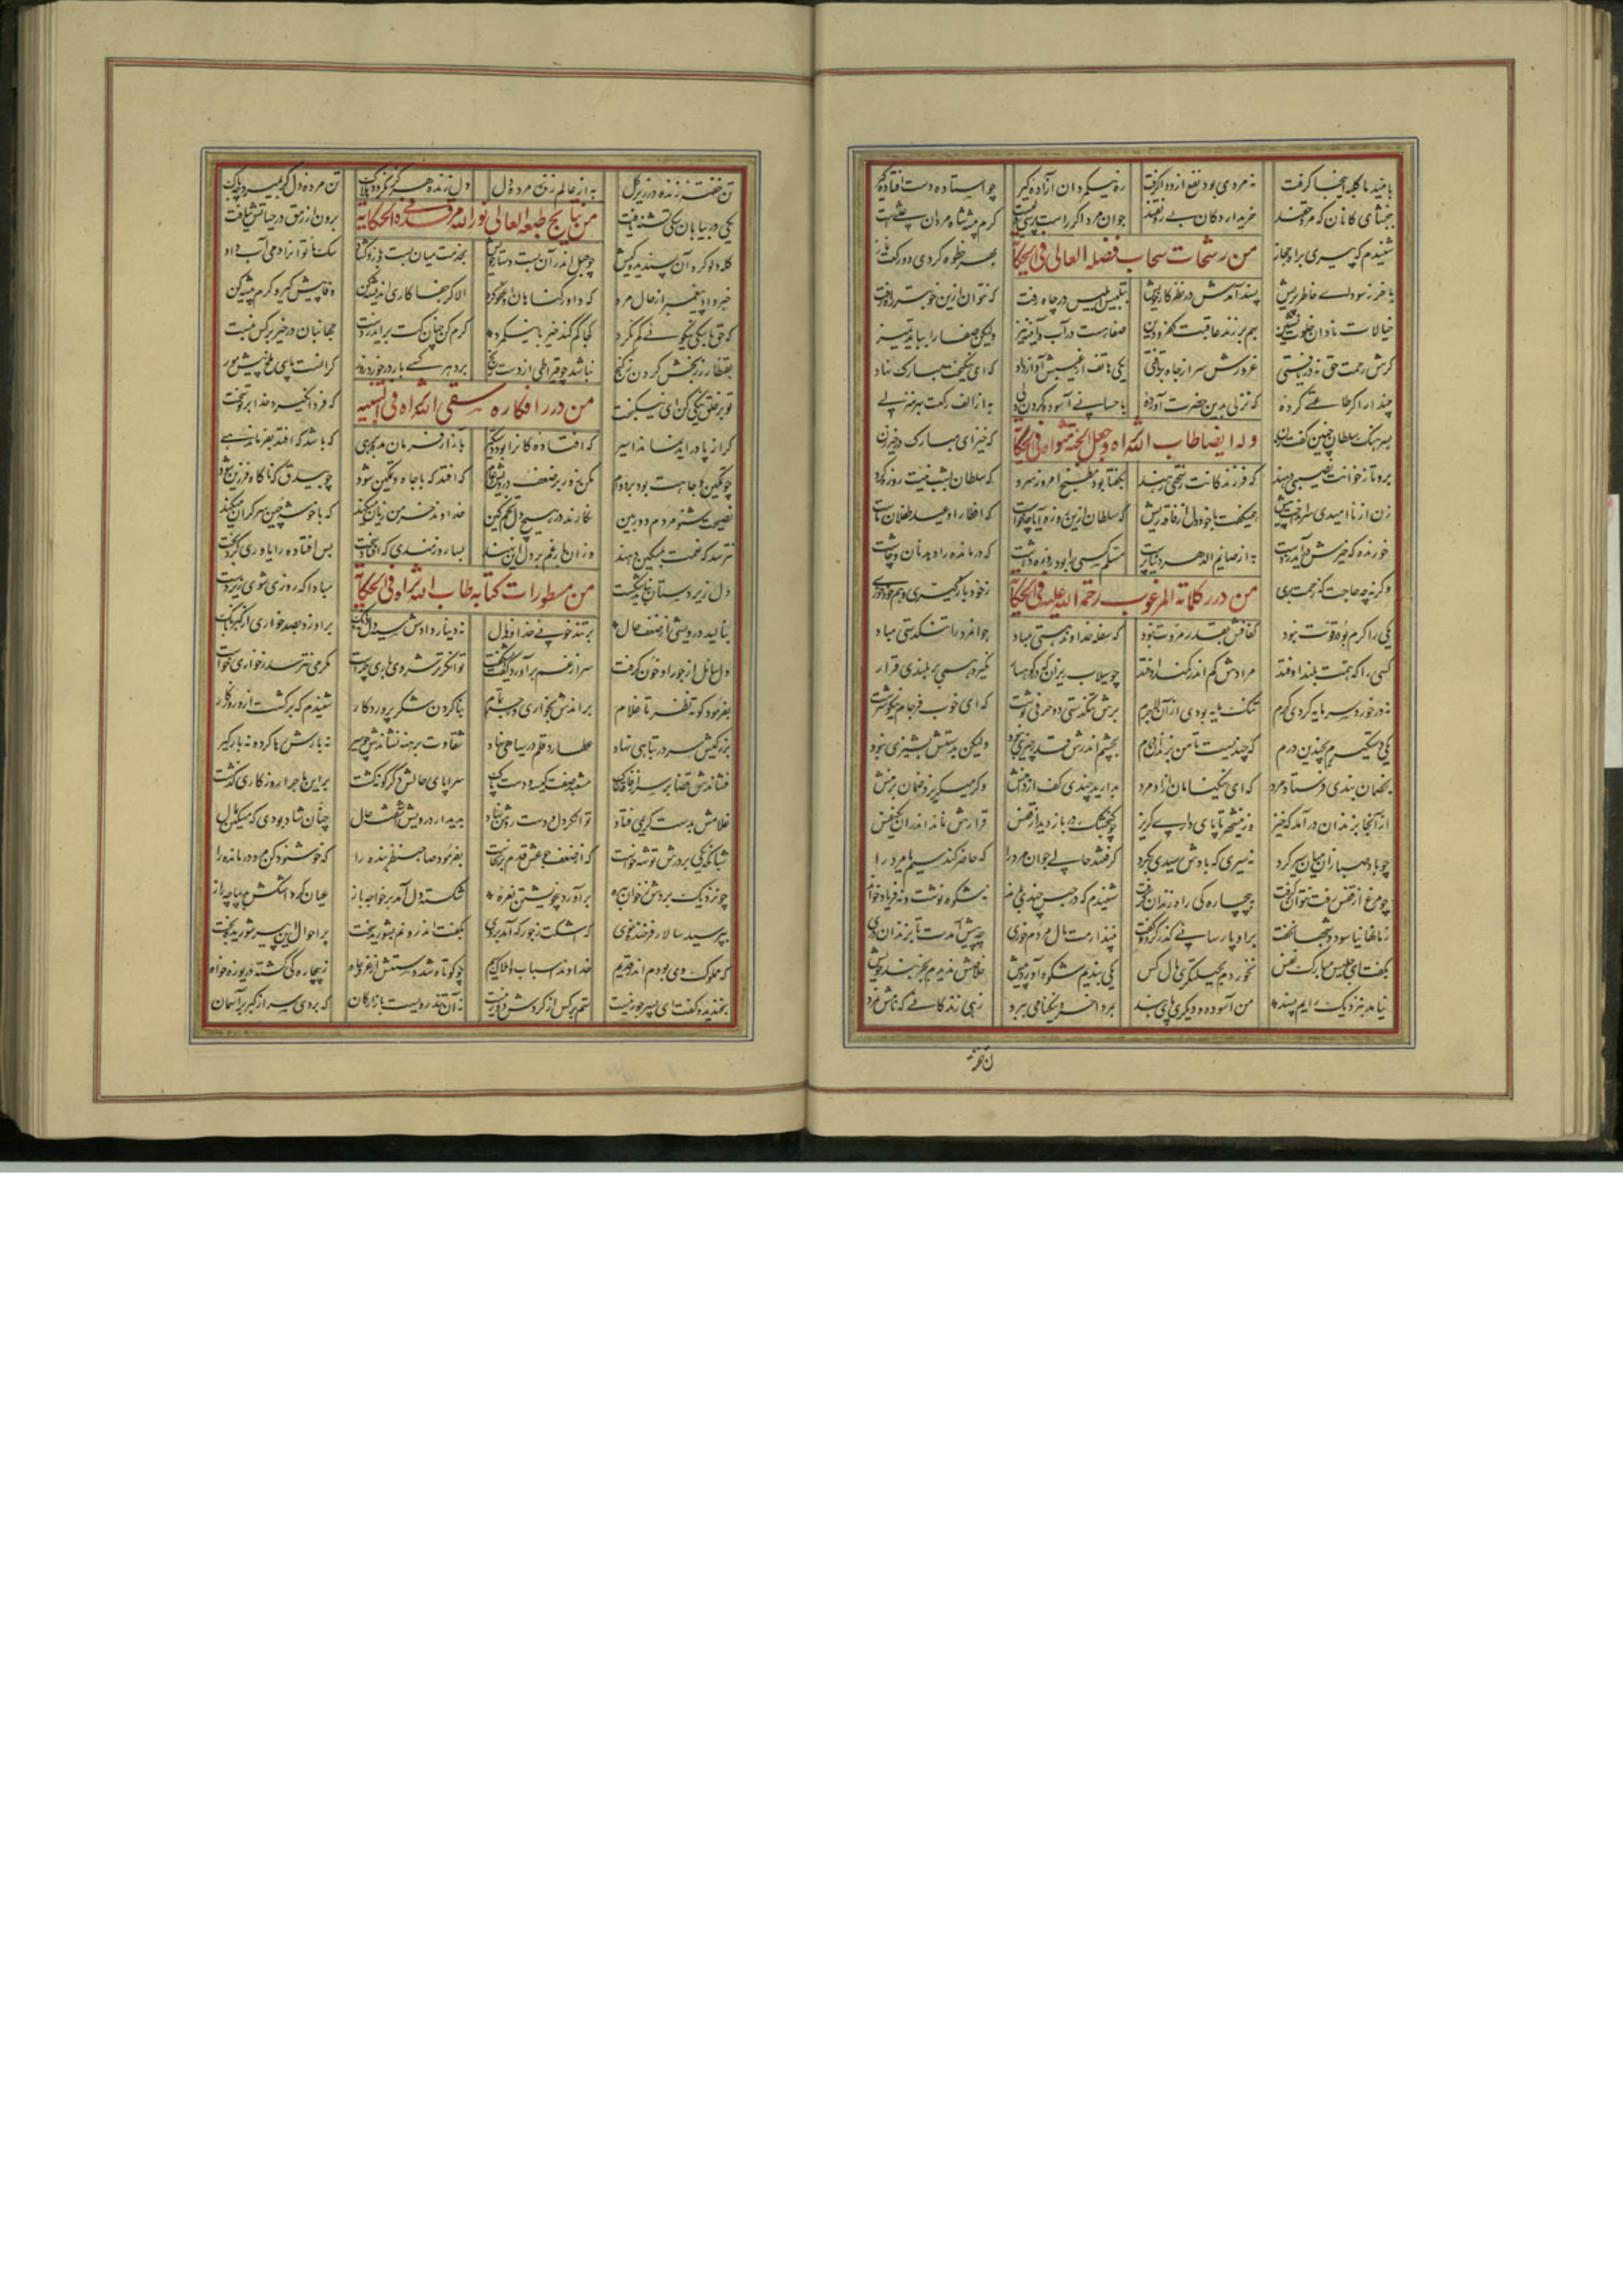 بامید ما کلبه اینجا گرفت نه مردی بود نفع ازو واگرفت ره نیکمردان آزاده گیر چو استاده دست افتاده گیر
ببخشای کانان که مرد حقند خریدار دکان بی رونقند جوانمرد اگر راست پرسی ولیست کرم پیشه شاه مردان علیست
من رشحات سحاب فضله العالی فی الحکایة
شنیدم که پیری براه حجاز بهر خطوه کردی دو رکعت نماز
پسند آمدش در نظر کار خویش بتلبیس ابلیس در چاه رفت که نتوان ازین خوبتر راه رفت
کرش رحمت حق نه دریافتی غرورش سر از جاده برتافتی یکی هاتف از غیبش آواز داد که ای نیکبخت مبارک نهاد
مپندار اگر طاعتی کردهٔ که نزلی بدین حضرت آوردهٔ باحسانی آسوده کردن دلی به از الف رکعت بهر منزلی
وله ایضا طاب الله ثراه و جعل الجنة مثواه فی الحکایة
بسرهنگ سلطان چنین گفت زن که خیز ای مبارک در رزق زن
برو تا ز خوانت نصیبی دهند که فرزندکانت بسختی درند بگفتا بود مطبخ امروز سرد که سلطان بشب نیت روزه کرد
زن از ناامیدی سر انداخت پیش همیگفت با خود دل از فاقه ریش که سلطان ازین روزه آیا چه خواست که افطار او عید طفلان ماست
خورنده که خیرش برآید ز دست به از صایم الدهر دنیاپرست مسلم کسی را بود روزه داشت که درمانده را دهد نان چاشت
وکرنه چه حاجت که زحمت بری ز خود بازگیری و هم خود خوری
من درر کلاته المرغوب رحمة الله علیه فی الحکایة
یکی را کرم بود و قوت نبود کفافش بقدر مروت نبود که سفله خداوند هستی مباد جوانمرد را تنکدستی مباد
کسی را که همت بلند اوفتد مرادش کم اندر کمند اوفتد چو سیلاب ریزان که در کوهسار نگیرد همی بر بلندی قرار
نه درخورد سرمایه کردی کرم تنک مایه بودی ازین لاجرم برش تنکدستی دو حرفی نوشت که ای خوب فرجام نیکو سرشت
یکی دست گیرم بچندین درم که چندیست تا من بزندان درم بچشم اندرش قدر چیزی نبود ولیکن بدستش پشیزی نبود
بخصمان بندی فرستاد مرد که ای نیکنامان آزاد مرد بدارید چندی کف از دامنش وکر میگریزد ضمان بر منش
وز آنجا بزندان درآمد که خیز وزین شهر تا پای داری گریز چو گنجشک در باز دید از قفس قرارش نماند اندران یکنفس
چو باد صبا زان میان سیر کرد نه سیری که بادش رسیدی بگرد گرفتند حالی جوانمرد را که حاضر کند سیم یا مرد را
چو مرغ از قفس رفت نتوان گرفت به بیچارگی راه زندان گرفت شنیدم که در حبس چندی بماند نه شکوه نوشت و نه فریاد خواند
زمانها نیاسود و شبها نخفت برو پارسائی گذر کرد و گفت نپندارمت مال مردم خوری چه پیش آمدت تا بزندان دری
بگفت ای جلیس مبارک نفس نخوردم بحیلتگری مال کس یکی بندیم شکوه آورد پیش خلاصش ندیدم بجز بند خویش
نیامد بنزدیک رایم پسند من آسوده و دیگری پای بند بمرد آخر و نیکنامی ببرد زهی زندگانی که نامش نمرد
تن خفته
تن خفته زنده در زیر گل به از عالم زنده مرده دل دل زنده هرگز نگردد هلاک تن مرده دل گر بمیرد چه باک
من نتایج طبعه العالی نور الله مرقده فی الحکایة
یکی در بیابان سگی تشنه یافت برون از رمق در حیاتش نیافت
کله دلو کرد آن پسندیده کیش چو حبل اندر آن بست دستار خویش بخدمت میان بست و بازو گشاد سگ ناتوانرا دمی آب داد
خبر داد پیغمبر از حال مرد که داور گناهان او عفو کرد الا گر جفاکاری اندیشه کن وفا پیش گیر و کرم پیشه کن
که حق با سگی نیکوئی گم نکرد کجا گم کند خیر با نیکمرد کرم کن چنان کت برآید ز دست جهانبان در خیر بر کس نبست
بقنطار زر بخش کردن ز گنج نباشد چو قیراطی از دست رنج برد هر کسی بار درخورد زور گرانست پای ملخ پیش مور
من درر افکاره سقی الله ثراه فی التنبیه
تو بر خلق نیکی کن ای نیکبخت که فردا نگیرد خدا بر تو سخت
گر از پا درآید نماند اسیر که افتادگانرا بود دستگیر بآزار فرمان مده بر رهی که باشد که افتد بفرماندهی
چو تمکین و جاهت بود بر دوام مکن زور بر ضعف درویش عام که افتد که با جاه و تمکین شود چو بیدق که ناگاه فرزین شود
نصیحت شنو مردم دوربین نکارند در هیچ دل تخم کین خداوند خرمن زیان میکند که با خوشه چین سر گران میکند
نترسد که نعمت بمسکین دهند وزان بار غم بر دل این نهند بسا زورمندی که افتاد سخت بس افتاده را یاوری کرد بخت
دل زیردستان نباید شکست مبادا که روزی شوی زیردست
من مسطورات کتابه طاب الله ثراه فی الحکایة
بنالید درویشی از ضعف حال بر تندخوئی خداوند مال نه دینار دادش سیه دل نه دانک برو زد بصد خواری از کبر بانک
دل سائل از جور او خون گرفت سر از غم برآورد و گفت ای شگفت توانگر ترشروی باری چراست مگر می نترسد ز خواری خواست
بفرمود کوته نظر تا غلام براندش بخواری و جبر تمام بناکردن شکر پروردگار شنیدم که برگشت ازو روزگار
بزرگیش سر در تباهی نهاد عطارد قلم در سیاهی نهاد شقاوت برهنه نشاندش چو سیر نه بارش رها کرد و نه بارگیر
فشاندش قضا بر سر از فاقه خاک مشعبد صفت کیسه و دست پاک سراپای حالش دگرگونه گشت براین ماجرا روزگاری گذشت
غلامش بدست کریمی فتاد توانگر دل و دست روشن نهاد بدیدار درویش آشفته حال چنان شاد بودی که مسکین بمال
شبانگه یکی بر درش توشه خواست که از ضعف جوعش قدم برنخاست بفرمود صاحبنظر بنده را که خوشنود کن مرد درمانده را
چو نزدیک بردش ز خوان بهره برآورد بی خویشتن نعره شکسته دل آمد بر خواجه باز عیان کرد اشکش بدیباچه راز
بپرسید سالار فرخنده خوی که اشکت ز جور که آمد بروی بگفت اندرونم بشورید سخت بر احوال این پیر شوریده بخت
که مملوک وی بودم اندر قدیم خداوند اسباب و املاک و سیم چو کوتاه شد دستش از عز و جاه ز بیچارگی گشته دریوزه خواه
بخندید و گفت ای پسر جور نیست ستم بر کس از گردش دور نیست نه آن تندرویست بازارگان که بردی سر از کبر بر آسمان